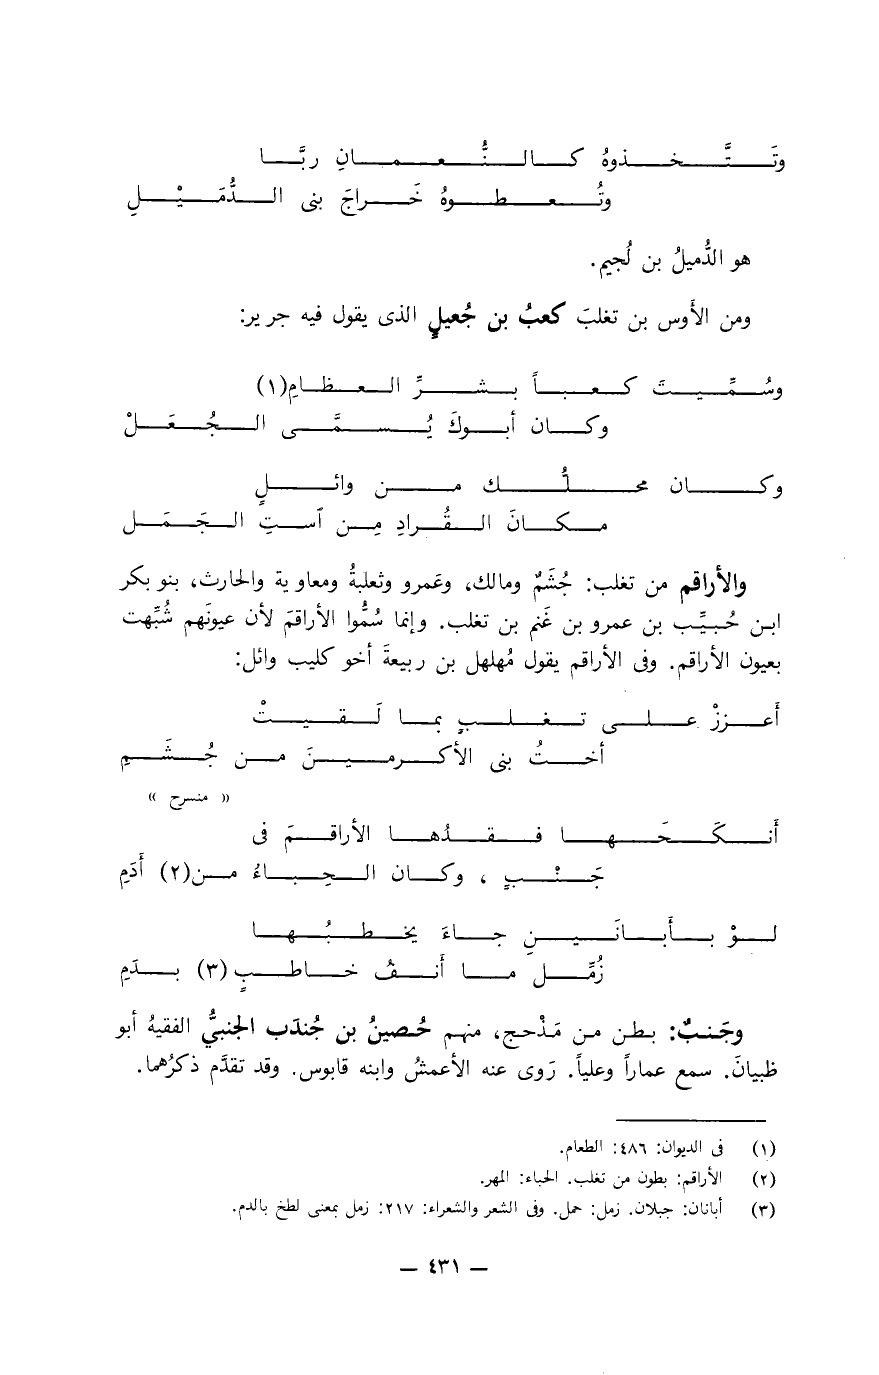 وتَتَّخذوهُ كالنُّعمانِ ربَّا
وتُعطوهُ خَراجَ بنى الدُّمَيْلِ
هو الدُّميلُ بن لُجيم.
ومن الأوس بن تغلبَ كعبُ بن جُعيلٍ الذى يقول فيه جرير:
وسُمِّيتَ كعباً بشرِّ العظامِ(١)
وكان أبوكَ يُسمَّى الجُعَلْ
وكان محلُّك من وائلٍ
مكانَ القُرادِ مِن آستِ الجَمَل
والأراقم من تغلب: جُشَمُ ومالك، وعَمرو وثعلبةُ ومعاوية والحارث، بنو بكر
ابن حُبيِّب بن عمرو بن غَنم بن تغلب. وإنما سُمُّوا الأراقمَ لأن عيونَهم شُبِّهت
بعيون الأراقم. وفى الأراقم يقول مُهلهل بن ربيعةَ أخو كليب وائل:
أَعززْ على تغلبٍ بما لَقيتْ
أختُ بنى الأكرمينَ من جُشَمِ
« منسرح »
أَنكَحَها فقدُها الأراقمَ فى
جَنْبٍ ، وكان الحِباءُ من(٢) أَدَمِ
لوْ بأَبانَينِ جاءَ يخطبُها
زُمِّل ما أَنفُ خاطبٍ(٣) بدَمِ
وجَنبٌ: بطن من مَذْحج، منهم حُصينُ بن جُندَب الجنبيُّ الفقيهُ أبو
ظبيانَ. سمع عماراً وعلياً. رَوى عنه الأعمشُ وابنه قابوس. وقد تقدَّم ذكرُهما.
(١) فى الديوان: ٤٨٦: الطعام.
(٢) الأراقم: بطون من تغلب. الحباء: المهر.
(٣) أبانان: جبلان. زمل: حمل. وفى الشعر والشعراء: ٢١٧: زمل بمعنى لطخ بالدم.
— ٤٣١ —